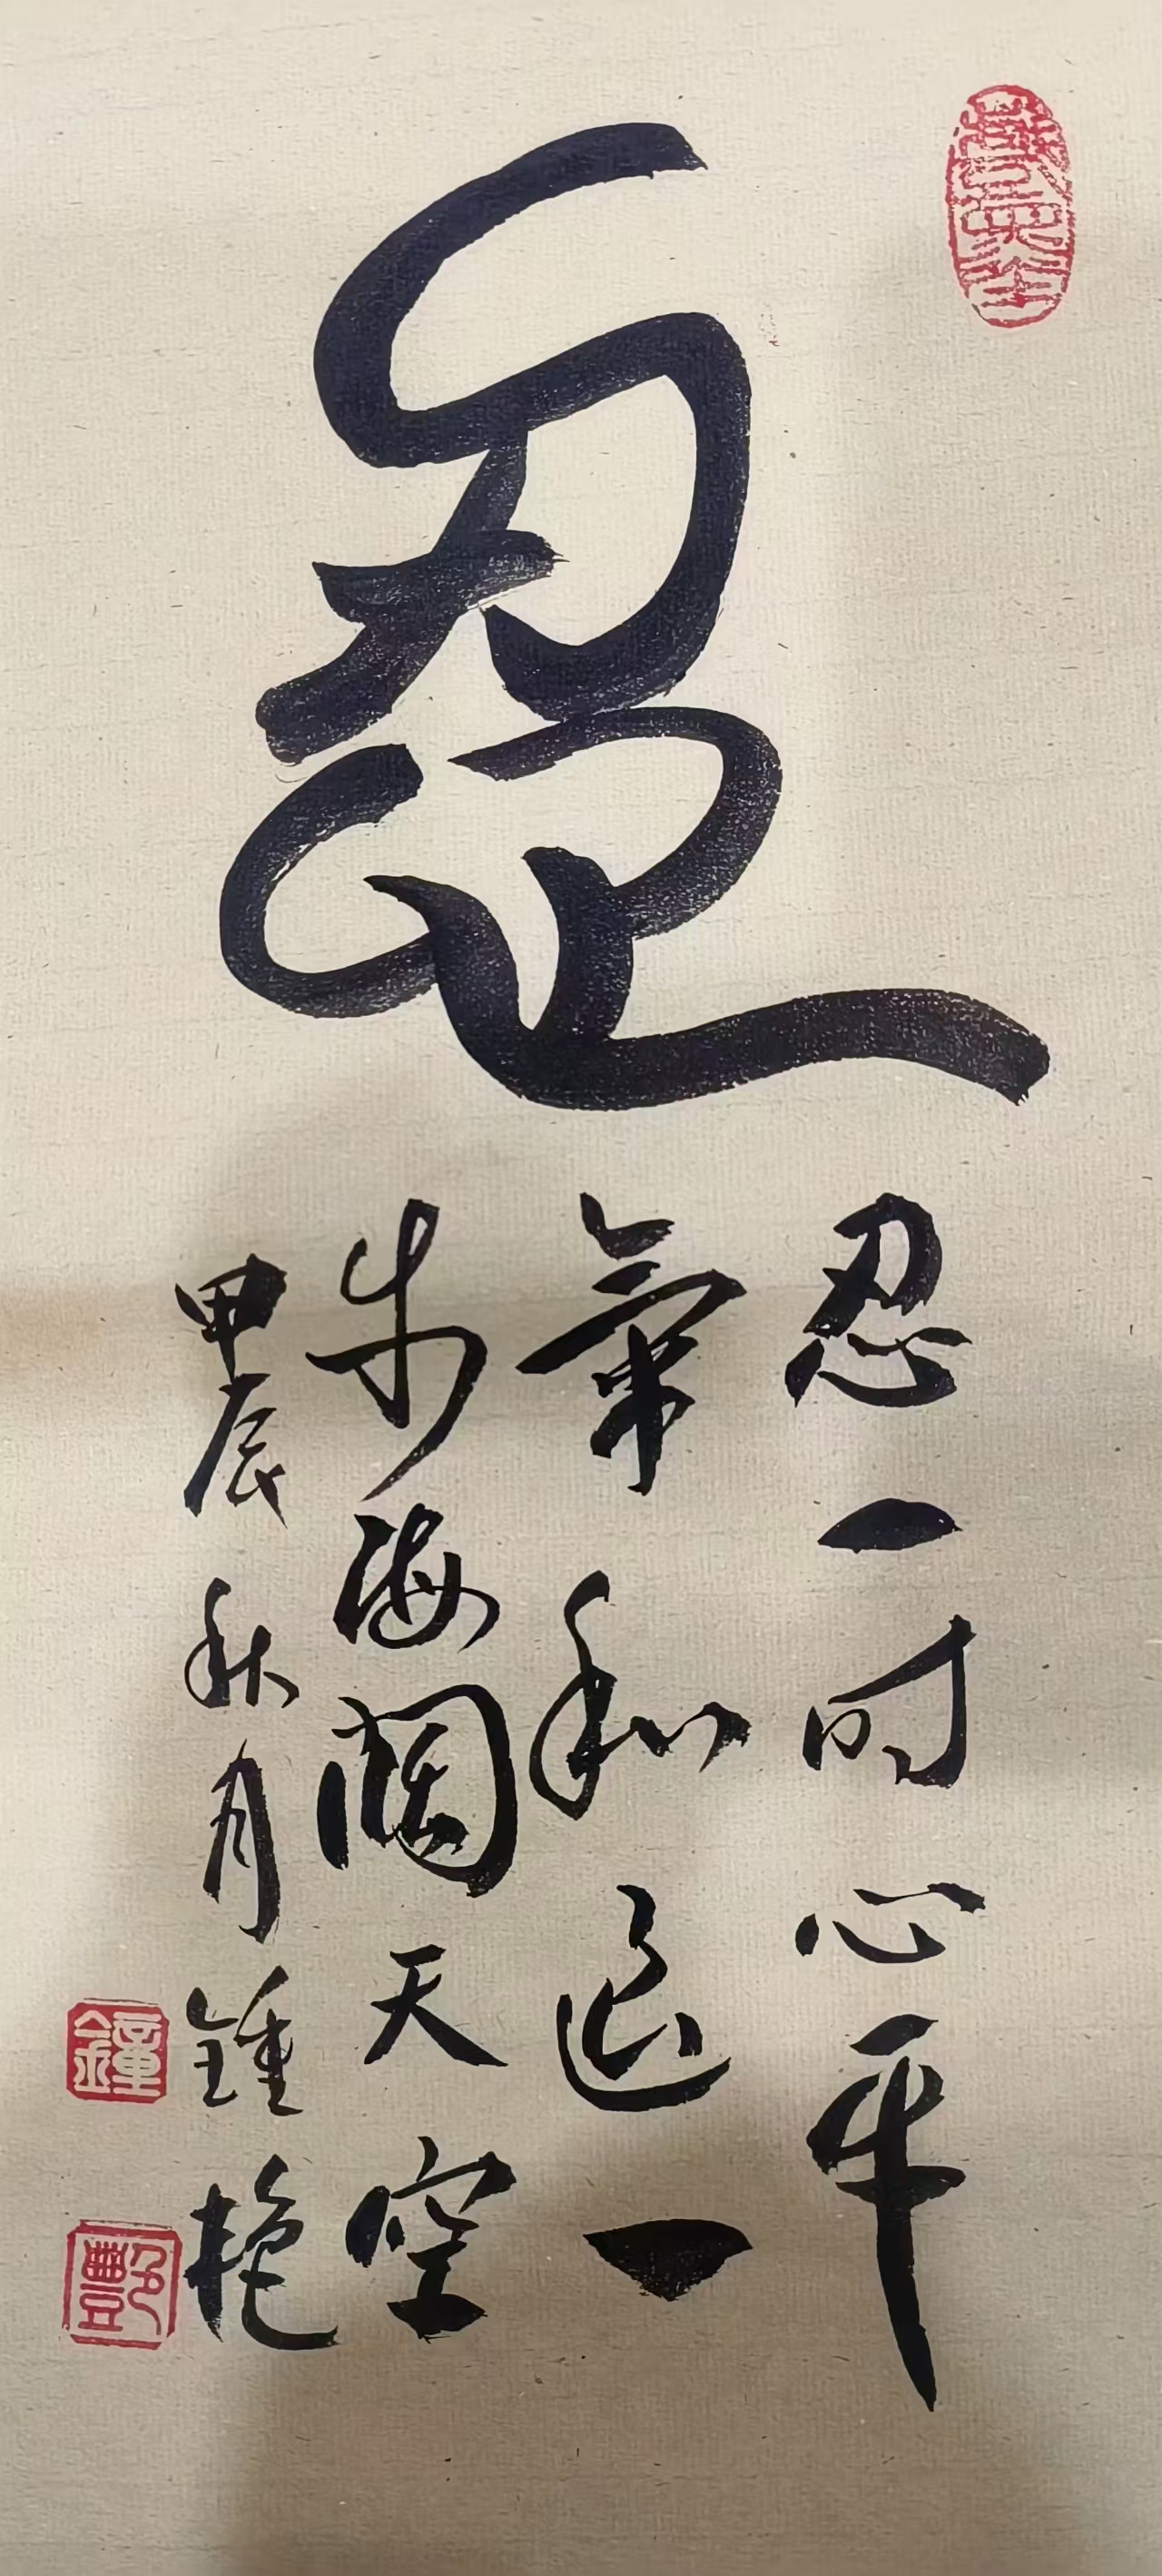 忍
忍一时心平
氣和退一
步海阔天空
甲辰秋月鍾艳
鐘
艷